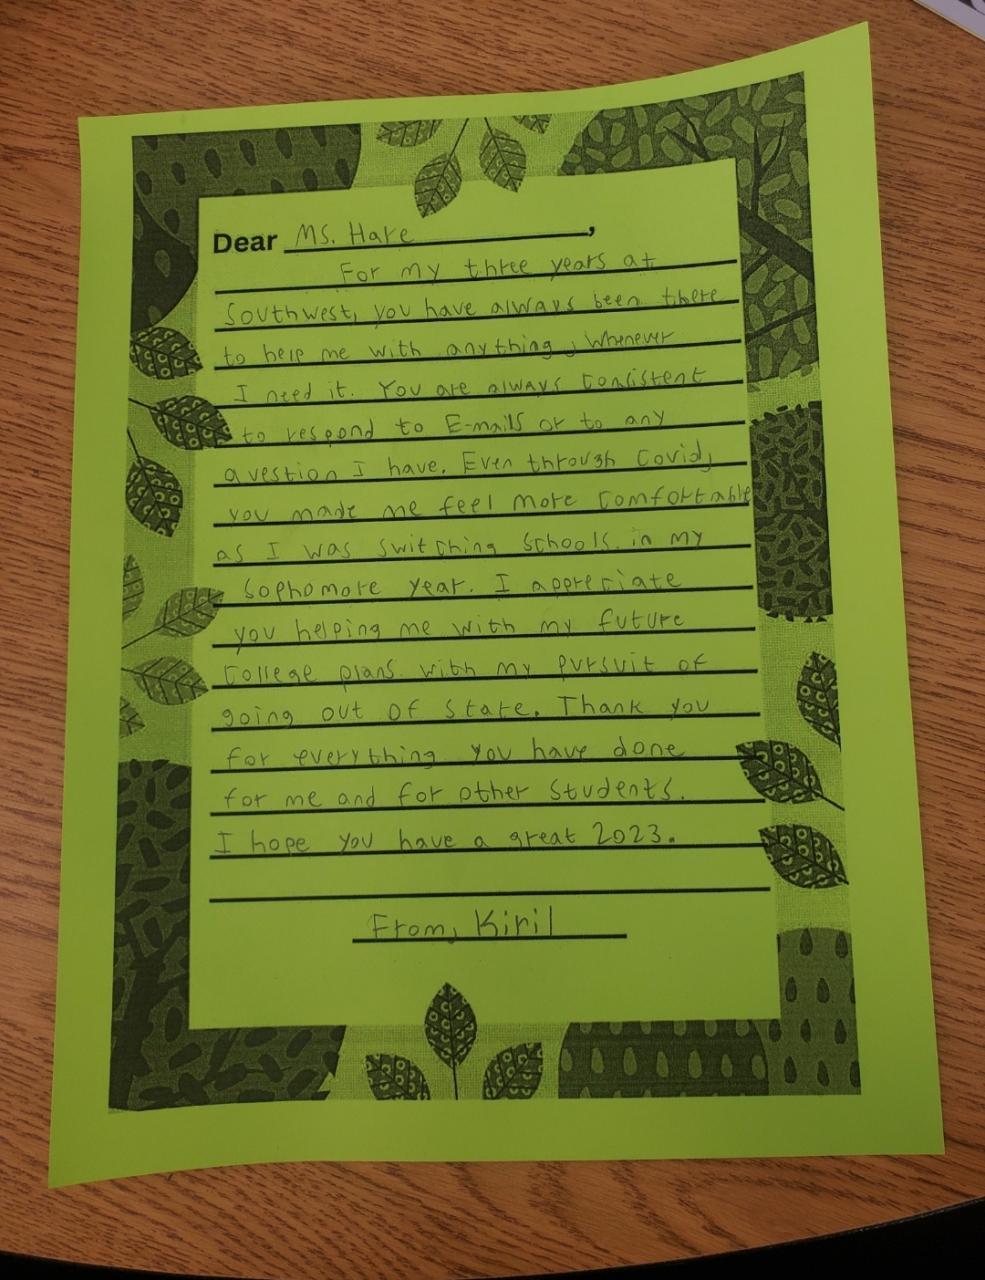 Dear Ms. Hare,
For my three years at
Southwest, you have always been there
to help me with anything, Whenever
I need it. You are always consistent
to respond to E-mails or to any
question I have. Even through Covid,
you made me feel more comfortable
as I was switching schools in my
Sophomore year. I appreciate
you helping me with my future
College plans with my pursuit of
going out of state. Thank you
for everything you have done
for me and for other students.
I hope you have a great 2023.
From, Kiril